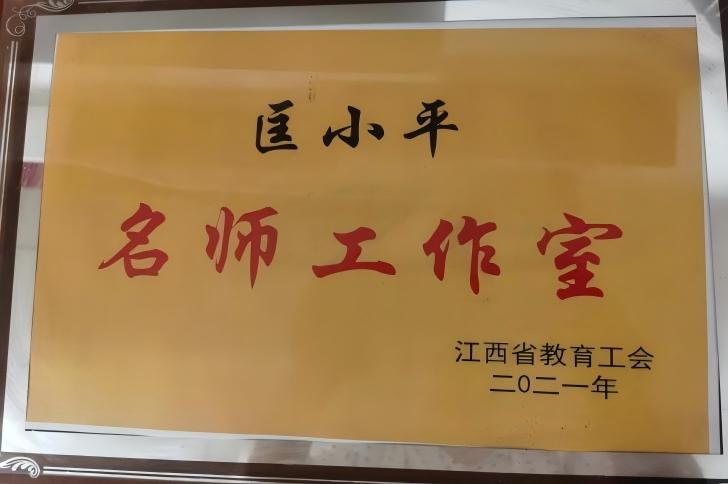 匡小平
名师工作室
江西省教育工会
二〇二一年